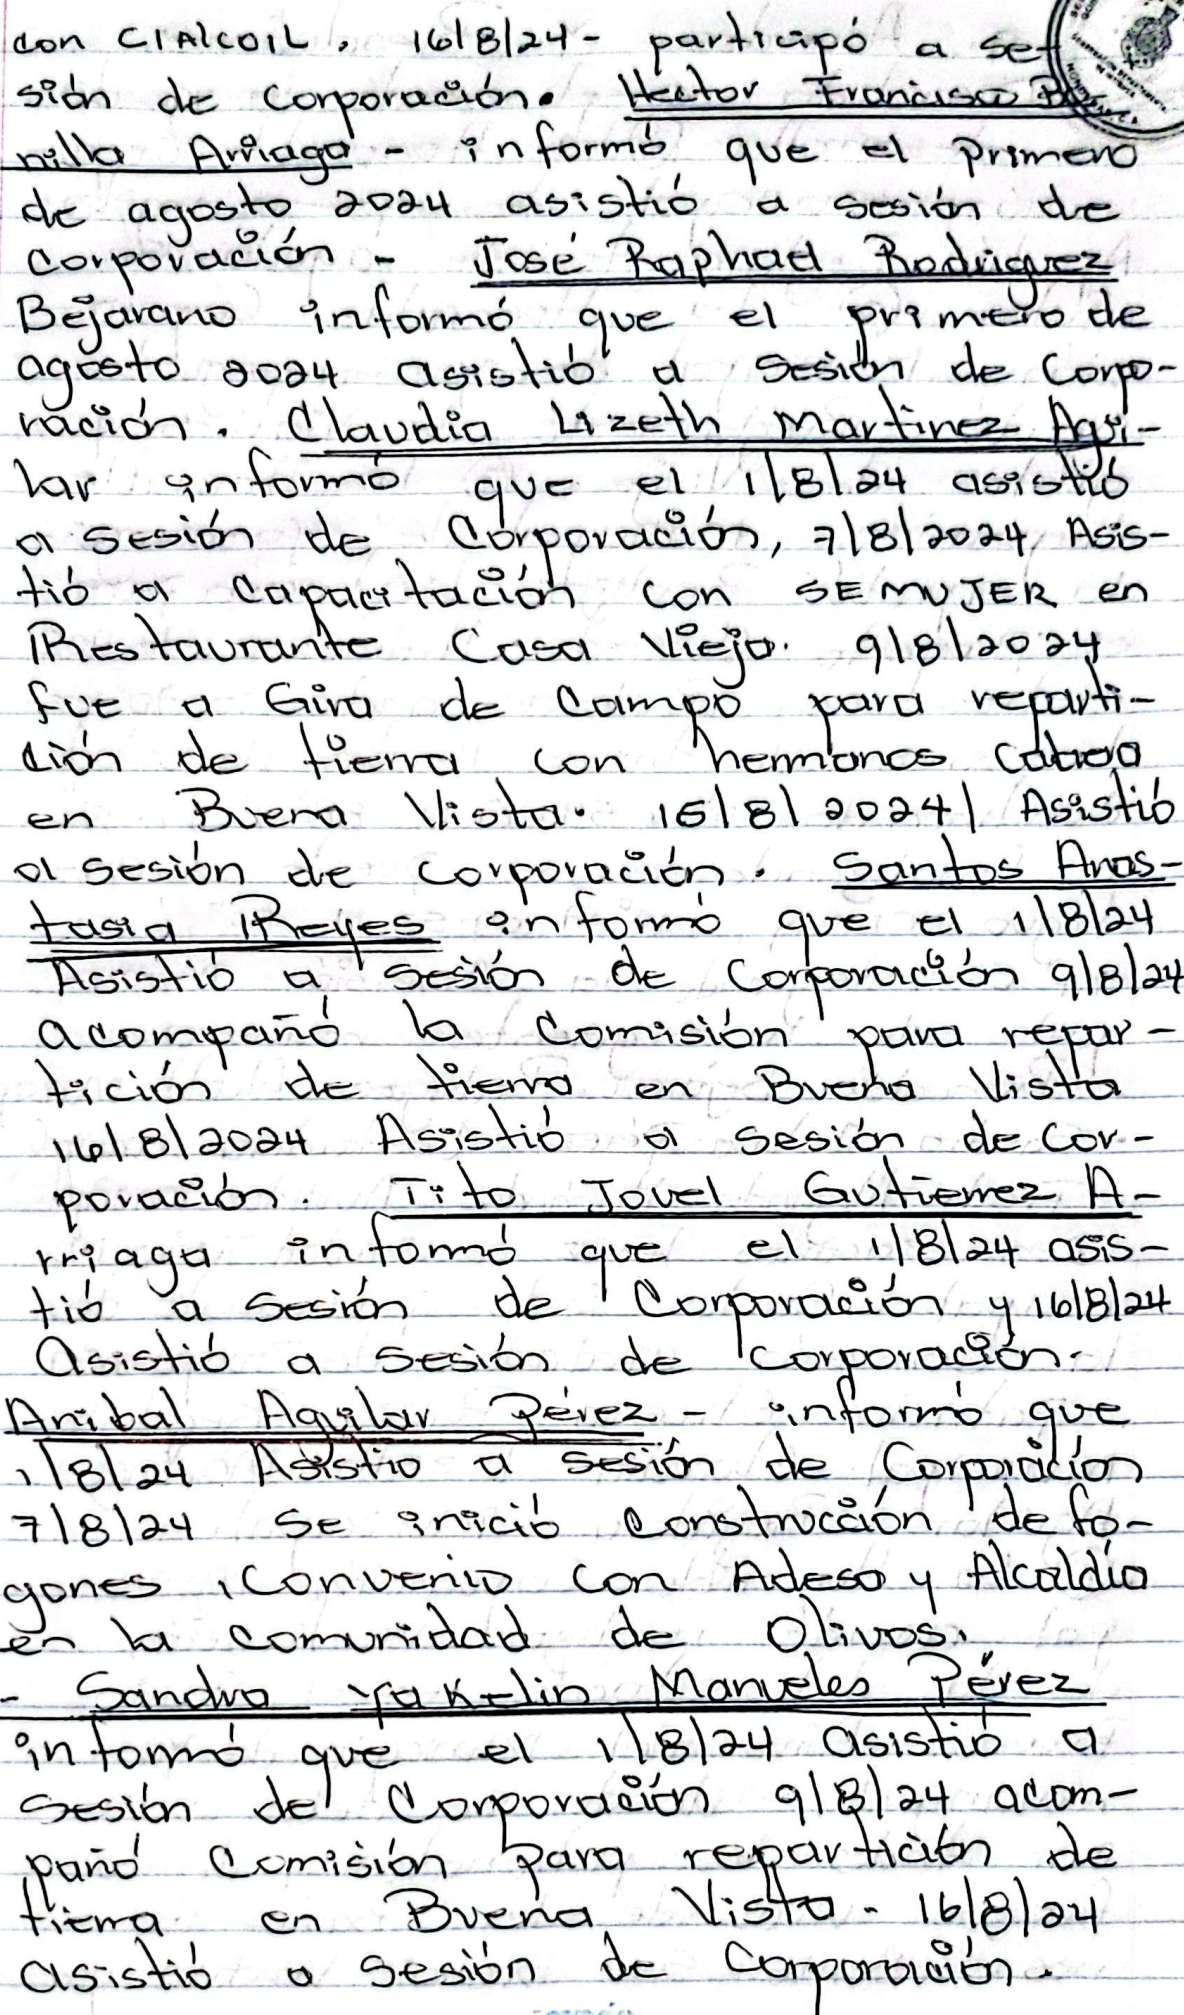 con CIALCOIL. 16/8/24 - participó a se-
sión de Corporación. Hector Francisco Bo
nilla Arriaga - informó que el primero
de agosto 2024 asistió a sesión de
Corporación - José Raphael Rodriguez
Bejarano informó que el primero de
agosto 2024 asistió a Sesión de Corpo-
ración. Claudia Lizeth Martinez Agui-
lar informó que el 1/8/24 asistió
a sesión de Corporación, 7/8/2024, Asis-
tió a Capacitación con SEMUJER en
Restaurante Casa Vieja. 9/8/2024
fue a Gira de Campo para reparti-
ción de tierra con hermanos
en Buena Vista. 15/8/2024/ Asistió
a sesión de corporación. Santos Anas-
tasia Reyes informó que el 1/8/24
Asistió a sesión de Corporación 9/8/24
acompañó la Comisión para repar-
tición de tierra en Buena Vista
16/8/2024 Asistió a sesión de Cor-
poración. Tito Jovel Gutierrez A-
rriaga informó que el 1/8/24 asis-
tió a Sesión de Corporación y 16/8/24
Asistió a sesión de Corporación.
Anibal Aguilar Pérez - informó que
1/8/24 Asistio a sesión de Corporación
7/8/24 se inició construcción de fo-
gones, Convenio con Adeso y Alcaldía
en la comunidad de Olivos.
- Sandra Yakelin Manueles Pérez
informó que el 1/8/24 asistió a
sesión de Corporación 9/8/24 acom-
pañó Comisión para repartición de
tierra en Buena Vista - 16/8/24
asistió a sesión de Corporación.